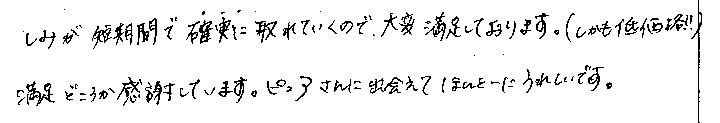 しみが短期間で確実に取れていくので、大変満足しております。(しかも低価格!!)
満足どころか感謝しています。ピュアさんに出会えてほんとーにうれしいです。